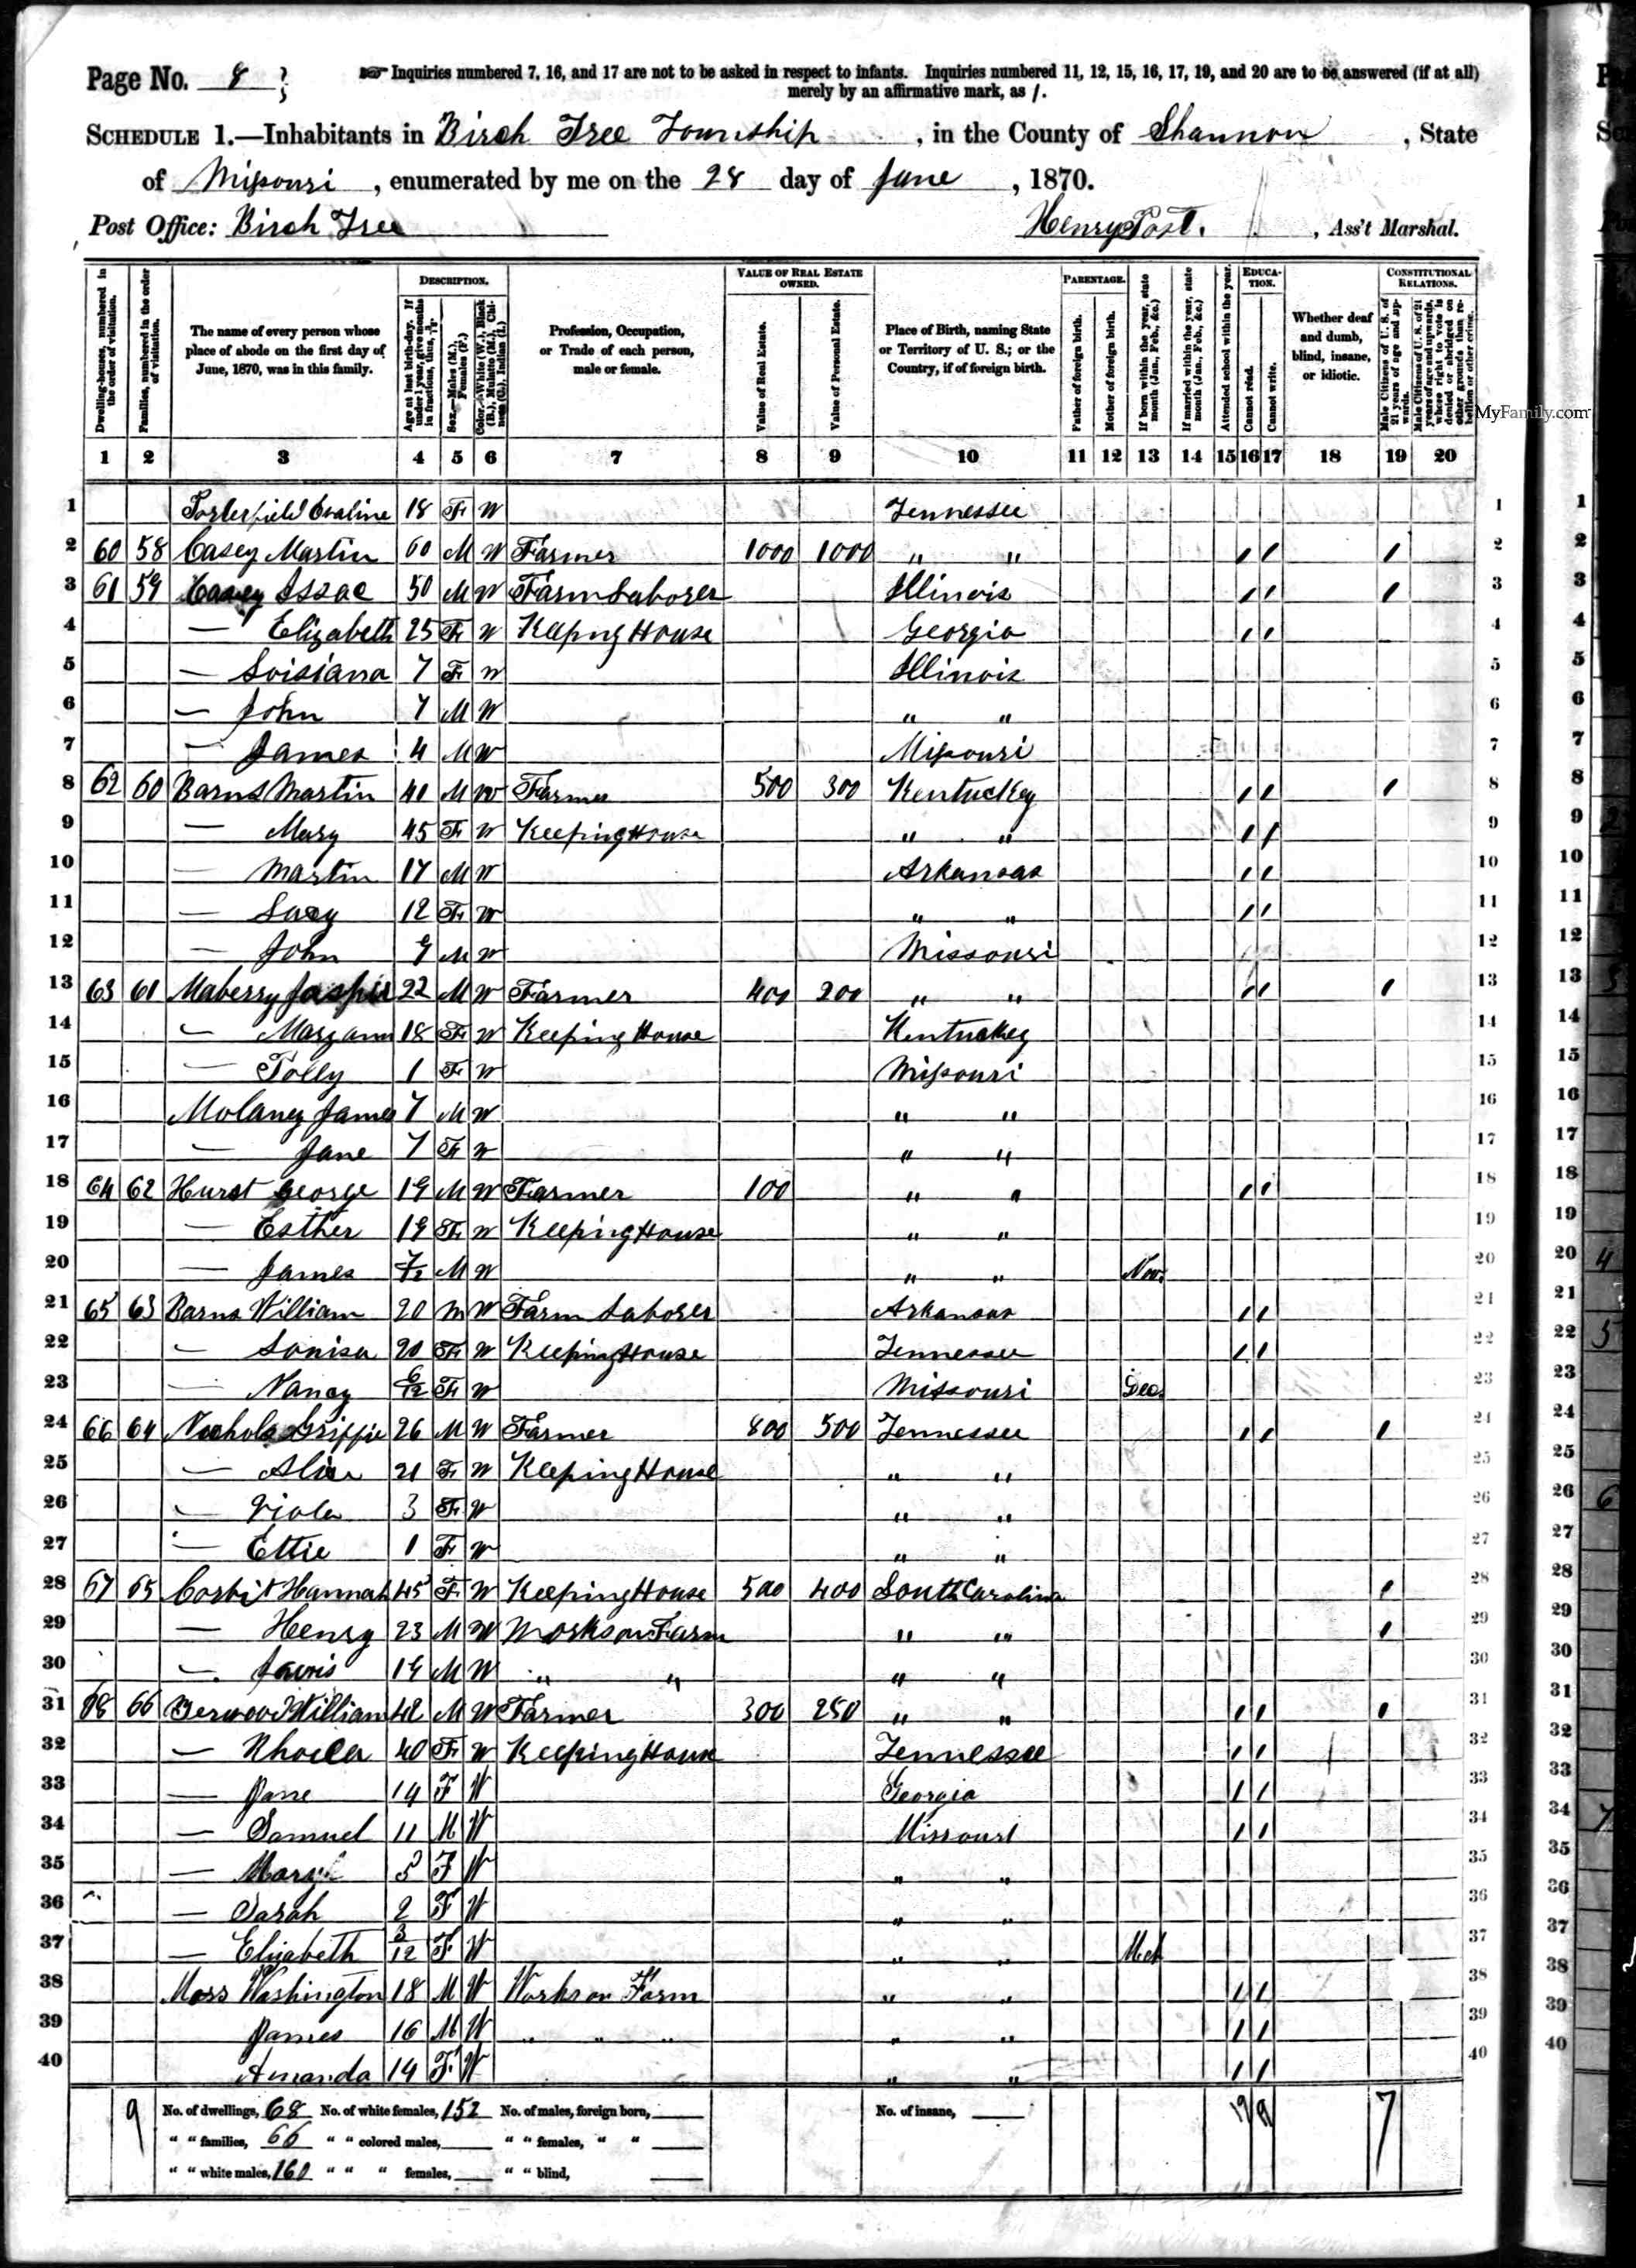 Page No. 8
Inquiries numbered 7, 16, and 17 are not to be asked in respect to infants. Inquiries numbered 11, 12, 15, 16, 17, 19, and 20 are to be answered (if at all)
merely by an affirmative mark, as /.
SCHEDULE 1.—Inhabitants in Birch Tree Township, in the County of Shannon, State
of Missouri, enumerated by me on the 28 day of June, 1870.
Post Office: Birch Tree Henry Post, Ass't Marshal.
Dwelling-houses, numbered in the order of visitation.
Families, numbered in the order of visitation.
The name of every person whose place of abode on the first day of June, 1870, was in this family.
DESCRIPTION.
Age at last birth-day. If under 1 year, give months in fractions, thus, 3/12
Sex.—Males (M.), Females (F.)
Color.—White (W.), Black (B.), Mulatto (M.), Chinese (C.), Indian (I.)
Profession, Occupation, or Trade of each person, male or female.
VALUE OF REAL ESTATE OWNED.
Value of Real Estate.
Value of Personal Estate.
Place of Birth, naming State or Territory of U. S.; or the Country, if of foreign birth.
PARENTAGE.
Father of foreign birth.
Mother of foreign birth.
If born within the year, state month (Jan., Feb., &c.)
If married within the year, state month (Jan., Feb., &c.)
Attended school within the year.
EDUCATION.
Cannot read.
Cannot write.
Whether deaf and dumb, blind, insane, or idiotic.
CONSTITUTIONAL RELATIONS.
Male Citizens of U. S. of 21 years of age and upwards.
Male Citizens of U. S. of 21 years of age and upwards, whose right to vote is denied or abridged on other grounds than rebellion or other crime.
MyFamily.com
1 2 3 4 5 6 7 8 9 10 11 12 13 14 15 16 17 18 19 20
1 Porterfield Evaline 18 F W Tennessee 1
2 60 58 Casey Martin 60 M W Farmer 1000 1000 " " / / / 2
3 61 59 Casey Iszac 50 M W Farm Laborer Illinois / / / 3
4 — Elizabeth 25 F W Keeping House Georgia / / 4
5 — Loisiana 7 F W Illinois 5
6 — John 7 M W " " 6
7 — James 4 M W Missouri 7
8 62 60 Barns Martin 41 M W Farmer 500 300 Kentuckey / / / 8
9 — Mary 45 F W Keeping House " " / / 9
10 — Martin 17 M W Arkansas / / 10
11 — Lucy 12 F W " " / / 11
12 — John 9 M W Missouri 12
13 63 61 Maberry Jasper 22 M W Farmer 400 200 " " / / / 13
14 — Maryann 18 F W Keeping House Kentuckey 14
15 — Polly 1 F W Missouri 15
16 Molaney James 7 M W " " 16
17 — Jane 7 F W " " 17
18 64 62 Hurst George 19 M W Farmer 100 " " / / 18
19 — Esther 19 F W Keeping House " " 19
20 — James 7/12 M W " " Nov. 20
21 65 63 Barns William 20 M W Farm Laborer Arkansas / / 21
22 — Louisa 20 F W Keeping House Tennessee / / 22
23 — Nancy 6/12 F W Missouri Dec. 23
24 66 64 Nichols Griffie 26 M W Farmer 800 500 Tennessee / / / 24
25 — Alice 21 F W Keeping House " " 25
26 — Viola 3 F W " " 26
27 — Ettie 1 F W " " 27
28 67 65 Corbit Hannah 45 F W Keeping House 500 400 South Carolina / 28
29 — Henry 23 M W Works on Farm " " / 29
30 — 19 M W " " " " 30
31 68 66 William 42 M W Farmer 300 250 " " / / / 31
32 — 40 F W Keeping House Tennessee / / 32
33 — Jane 14 F W Georgia / / 33
34 — Samuel 11 M W Missouri / / 34
35 — Mary 5 F W " " 35
36 — Sarah 2 F W " " 36
37 — Elizabeth 3/12 F W " " Mch 37
38 Moss Washington 18 M W Works on Farm " " / / 38
39 James 16 M W " " " " " / / 39
40 Amanda 14 F W " " / / 40
9 No. of dwellings, 68 No. of white females, 152 No. of males, foreign born, No. of insane, 19 7
" " families, 66 " " colored males, " " females, " "
" " white males, 160 " " " females, " " blind,